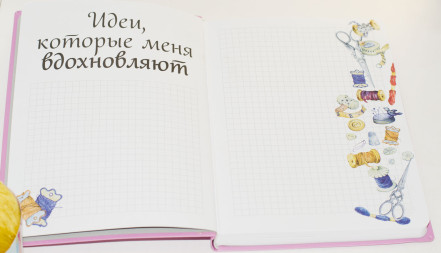 Идеи,
которые меня
вдохновляют